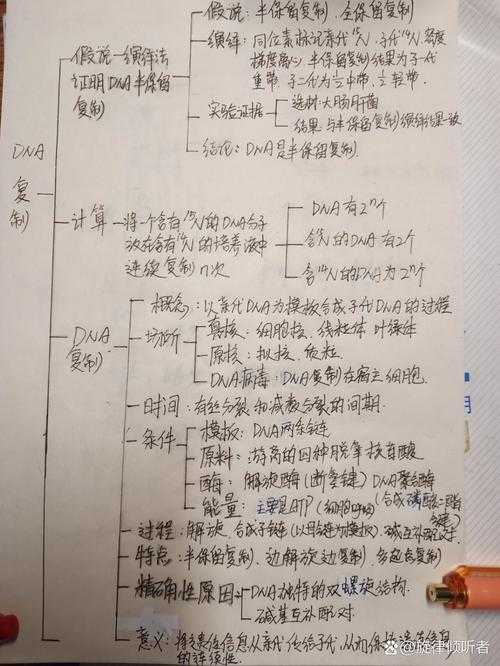 假说：半保留复制、全保留复制
演绎：同位素标记亲代15N，子代14N，密度
梯度离心，半保留复制结果为子一代
重带，子二代为½中带，½轻带.
假说—演绎法
证明DNA半保留
复制
实验证据
选材：大肠杆菌
结果：与半保留复制演绎结果一致
结论：DNA是半保留复制.
DNA
复制
计算
将一个含有15N的DNA分子
放在含有14N的培养液中
连续复制n次
DNA有2ⁿ个
含15N的DNA有2个
含14N的DNA为2ⁿ个
DNA
复制
概念：以亲代DNA为模板合成子代DNA的过程
场所
真核：细胞核、线粒体 叶绿体
原核：拟核、质粒
DNA病毒：DNA复制在宿主细胞.
时间：有丝分裂和减数分裂的间期.
条件
模板：DNA两条链
原料：游离的四种脱氧核苷酸
酶：解旋酶(断氢键) DNA聚合酶
(合成磷酸二酯键)
能量：主要是ATP (细胞呼吸)
过程：解旋，合成子链(以母链为模板)，碱基互补配对.
特点：半保留复制、边解旋边复制，多起点复制
精确性原因
DNA独特的双螺旋结构.
碱基互补配对.
意义：将遗传信息从亲代传给子代，从而保持遗传信息
的连续性.
月
@旋律倾听者